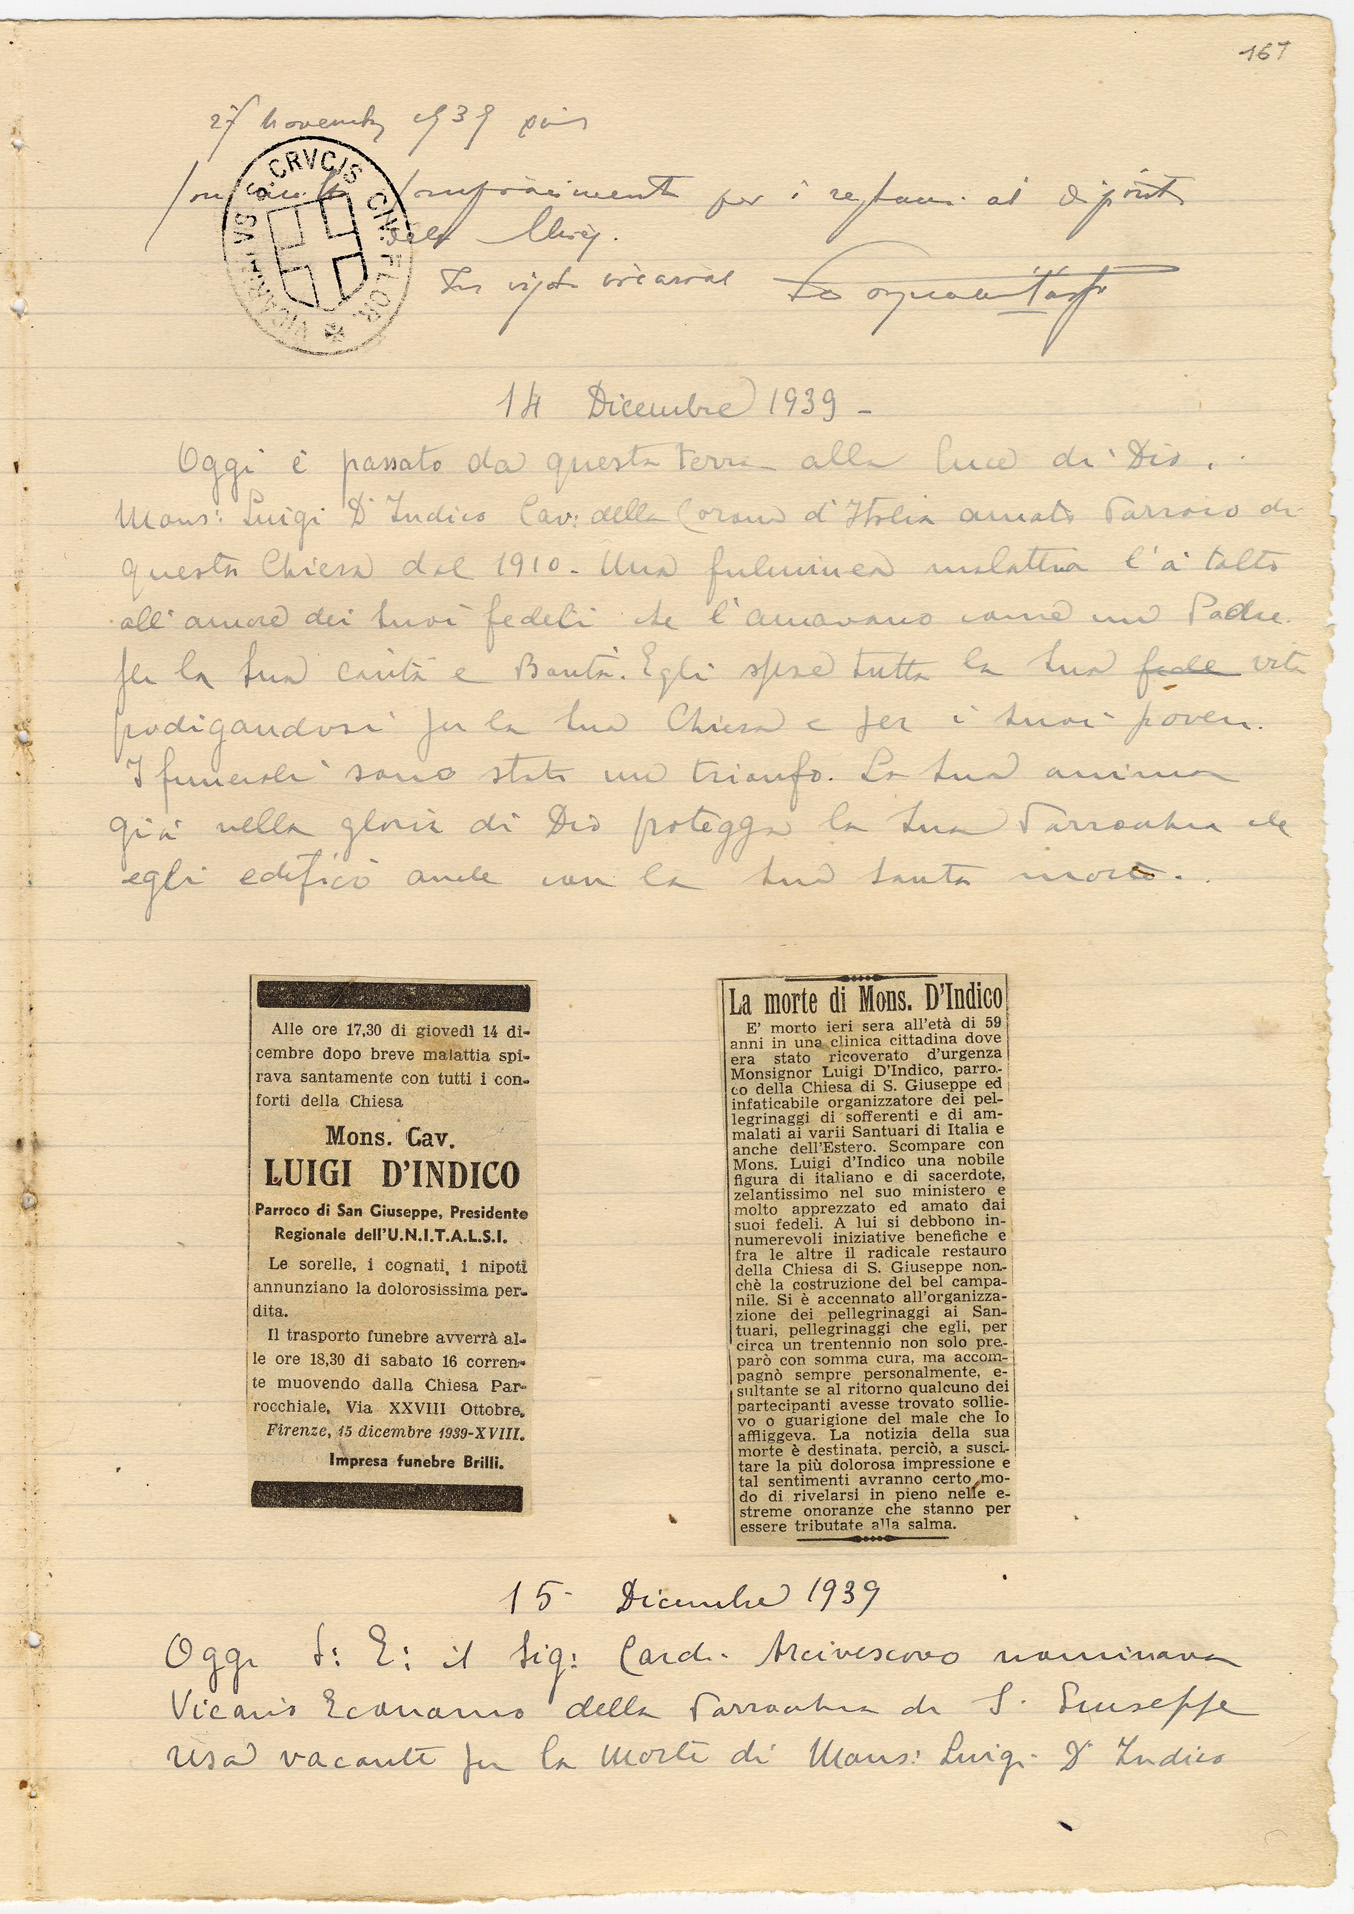 167
27 novembre 1939
per i
VICARIVS S. CRVCIS CIV. FLOR.
In visita vicariale
14 Dicembre 1939 -
Oggi è passato da questa terra alla luce di Dio.
Mons: Luigi D'Indico Cav: della Corona d'Italia amato Parroco di
questa Chiesa dal 1910 - Una fulminea malattia l'à tolto
all'amore dei suoi fedeli che l'amavano come un Padre.
per la sua carità e Bontà. Egli spese tutta la sua fede vita
prodigandosi per la sua Chiesa e per i suoi poveri.
I funerali sono stati un trionfo. La sua anima
già nella gloria di Dio protegga la sua Parrocchia che
egli edificò anche con la sua santa morte.
Alle ore 17,30 di giovedì 14 di-
cembre dopo breve malattia spi-
rava santamente con tutti i con-
forti della Chiesa
Mons. Cav.
LUIGI D'INDICO
Parroco di San Giuseppe, Presidente
Regionale dell'U.N.I.T.A.L.S.I.
Le sorelle, i cognati, i nipoti
annunziano la dolorosissima per-
dita.
Il trasporto funebre avverrà al-
le ore 18,30 di sabato 16 corren-
te muovendo dalla Chiesa Par-
rocchiale, Via XXVIII Ottobre.
Firenze, 15 dicembre 1939-XVIII.
Impresa funebre Brilli.
La morte di Mons. D'Indico
E' morto ieri sera all'età di 59
anni in una clinica cittadina dove
era stato ricoverato d'urgenza
Monsignor Luigi D'Indico, parro-
co della Chiesa di S. Giuseppe ed
infaticabile organizzatore dei pel-
legrinaggi di sofferenti e di am-
malati ai varii Santuari di Italia e
anche dell'Estero. Scompare con
Mons. Luigi d'Indico una nobile
figura di italiano e di sacerdote,
zelantissimo nel suo ministero e
molto apprezzato ed amato dai
suoi fedeli. A lui si debbono in-
numerevoli iniziative benefiche e
fra le altre il radicale restauro
della Chiesa di S. Giuseppe non-
chè la costruzione del bel campa-
nile. Si è accennato all'organizza-
zione dei pellegrinaggi ai San-
tuari, pellegrinaggi che egli, per
circa un trentennio non solo pre-
parò con somma cura, ma accom-
pagnò sempre personalmente, e-
sultante se al ritorno qualcuno dei
partecipanti avesse trovato sollie-
vo o guarigione del male che lo
affliggeva. La notizia della sua
morte è destinata, perciò, a susci-
tare la più dolorosa impressione e
tal sentimenti avranno certo mo-
do di rivelarsi in pieno nelle e-
streme onoranze che stanno per
essere tributate alla salma.
15 Dicembre 1939
Oggi S: E: il Sig: Card. Arcivescovo nominava
Vicario Economo della Parrocchia di S. Giuseppe
resa vacante per la morte di Mons: Luigi D'Indico